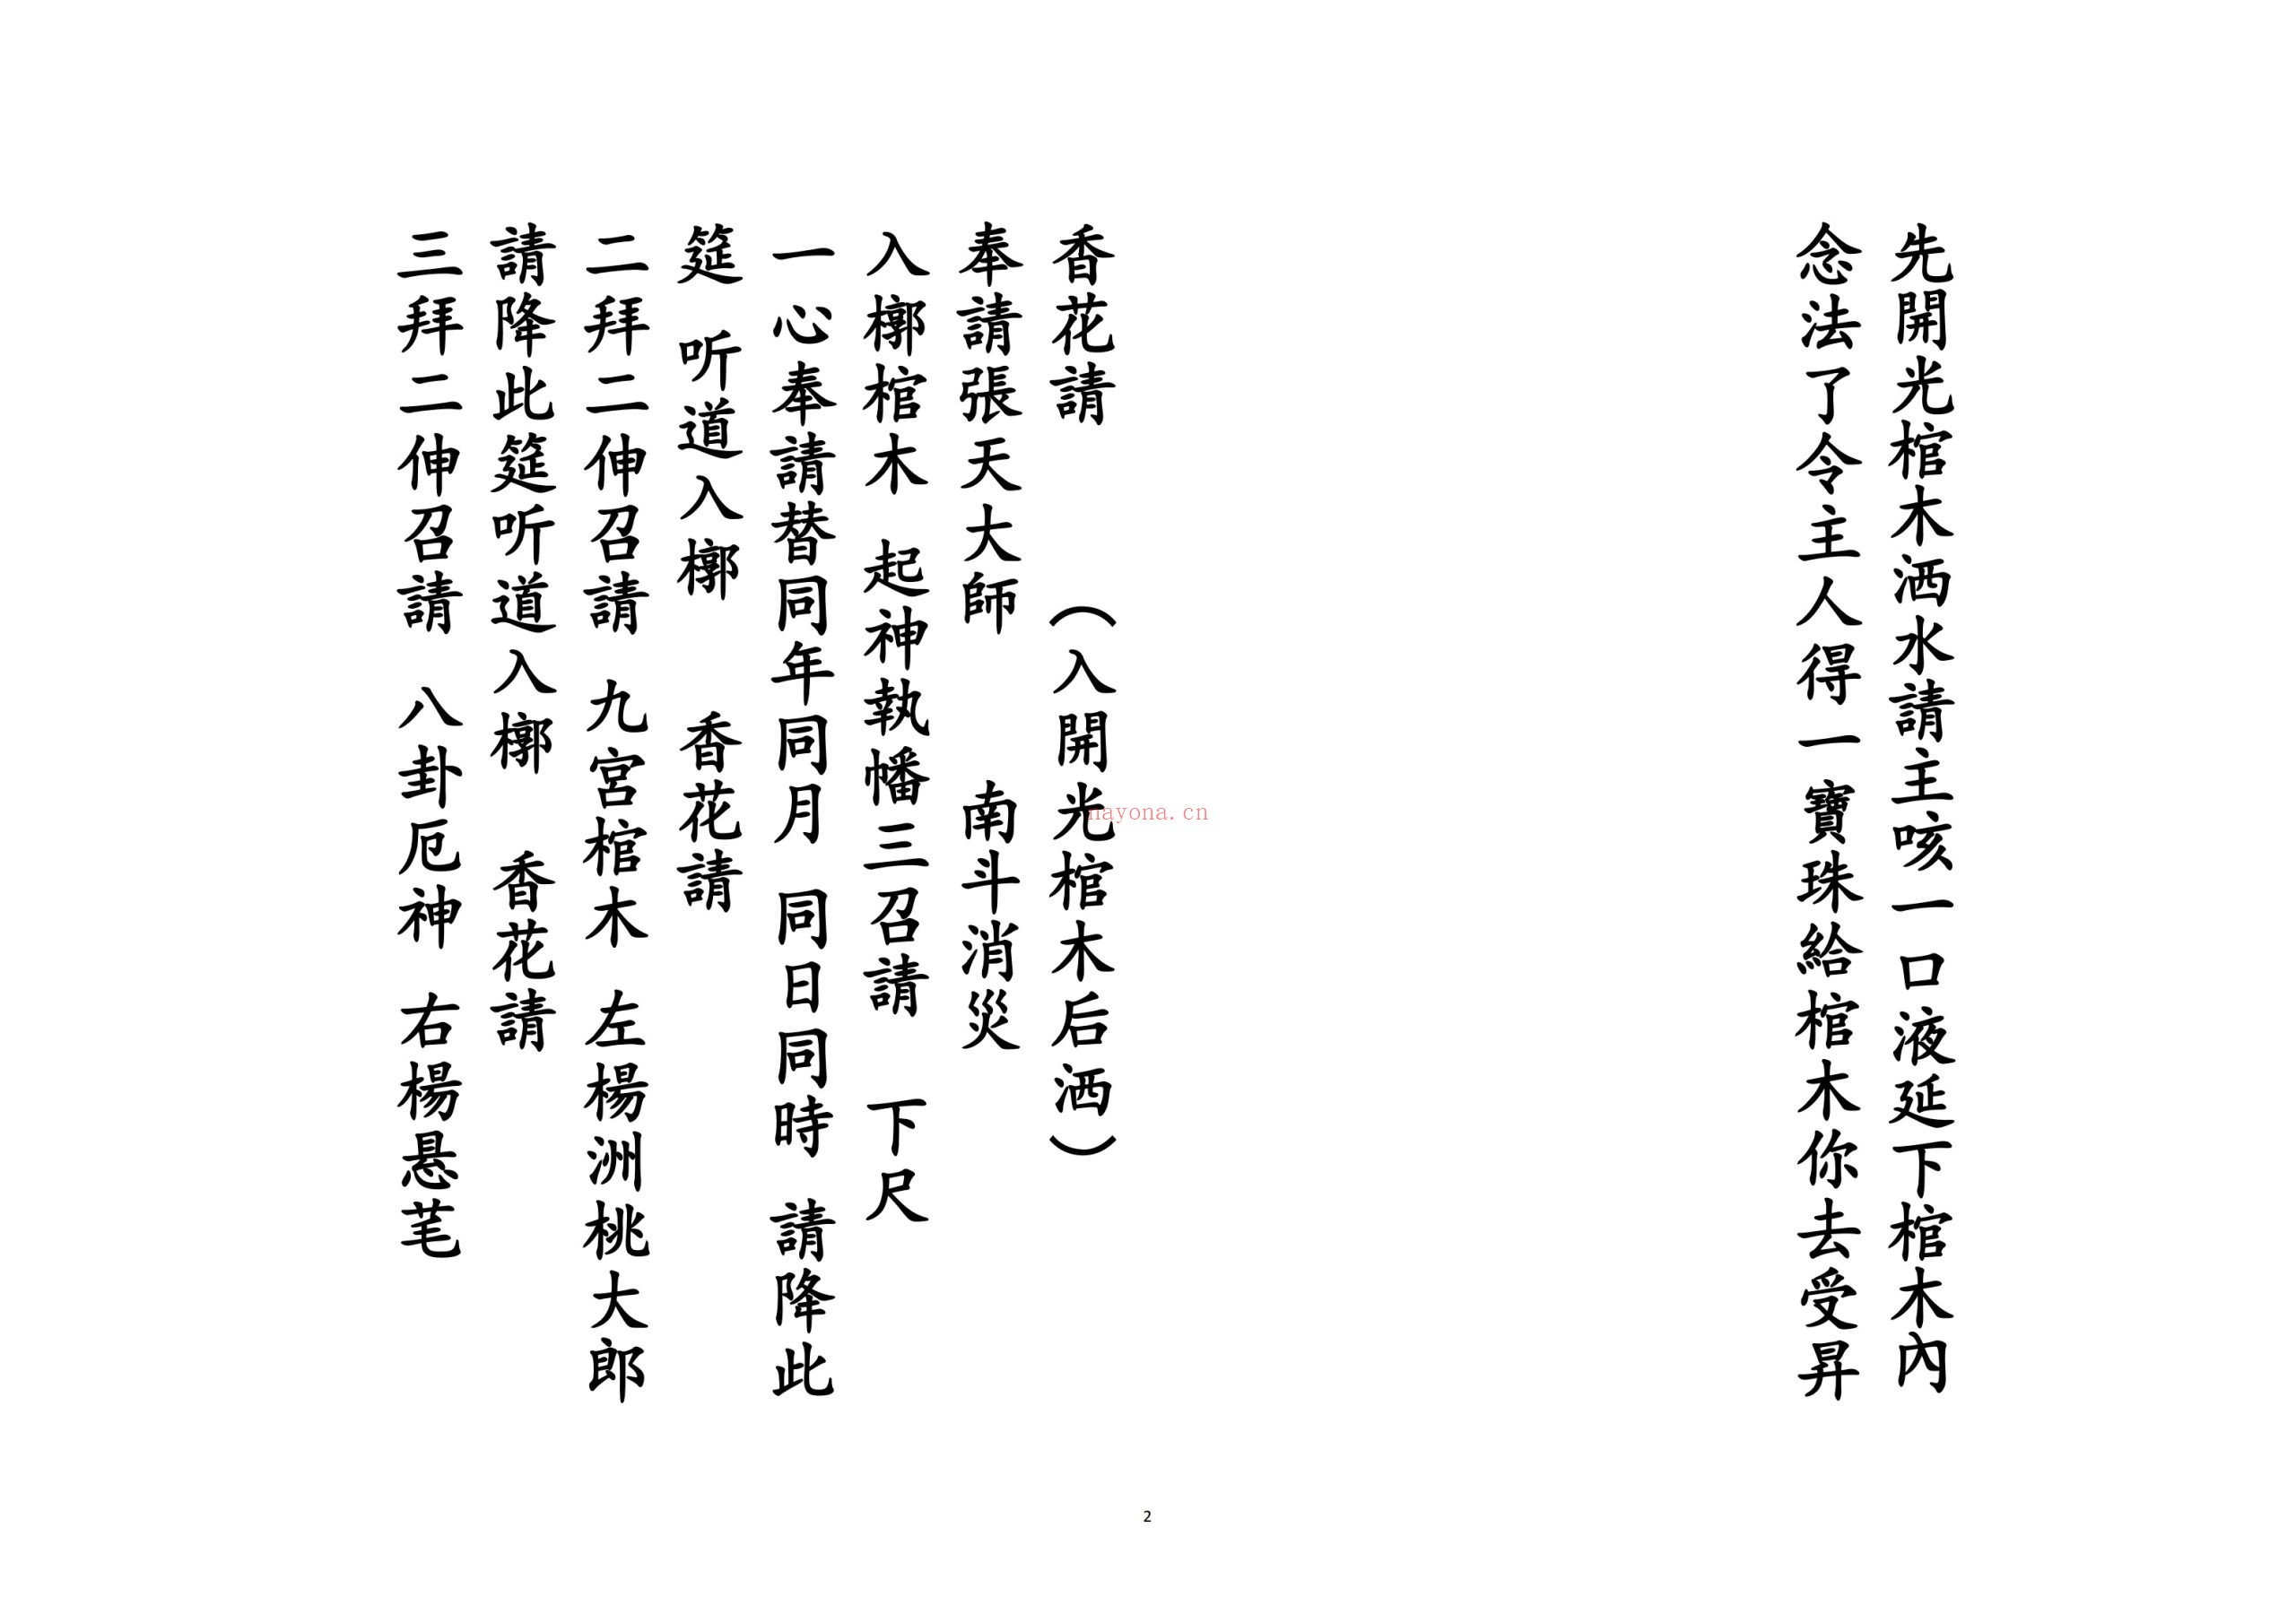 先開光棺木洒水請主咳一口液延下棺木內
念法了令主人得一寶珠給棺木你去受昇
香花請 （入開光棺木后洒）
奉請張天大師 南斗消災
入槨棺木 起神執幡三召請 下尺
一心奉請替同年同月 同日同時 請降此
筵 听道入槨 香花請
二拜二伸召請 九宮棺木 左楊洲桃大郎
請降此筵听道入槨 香花請
三拜二伸召請 八卦厄神 右楊悬芼
nayona.cn
2